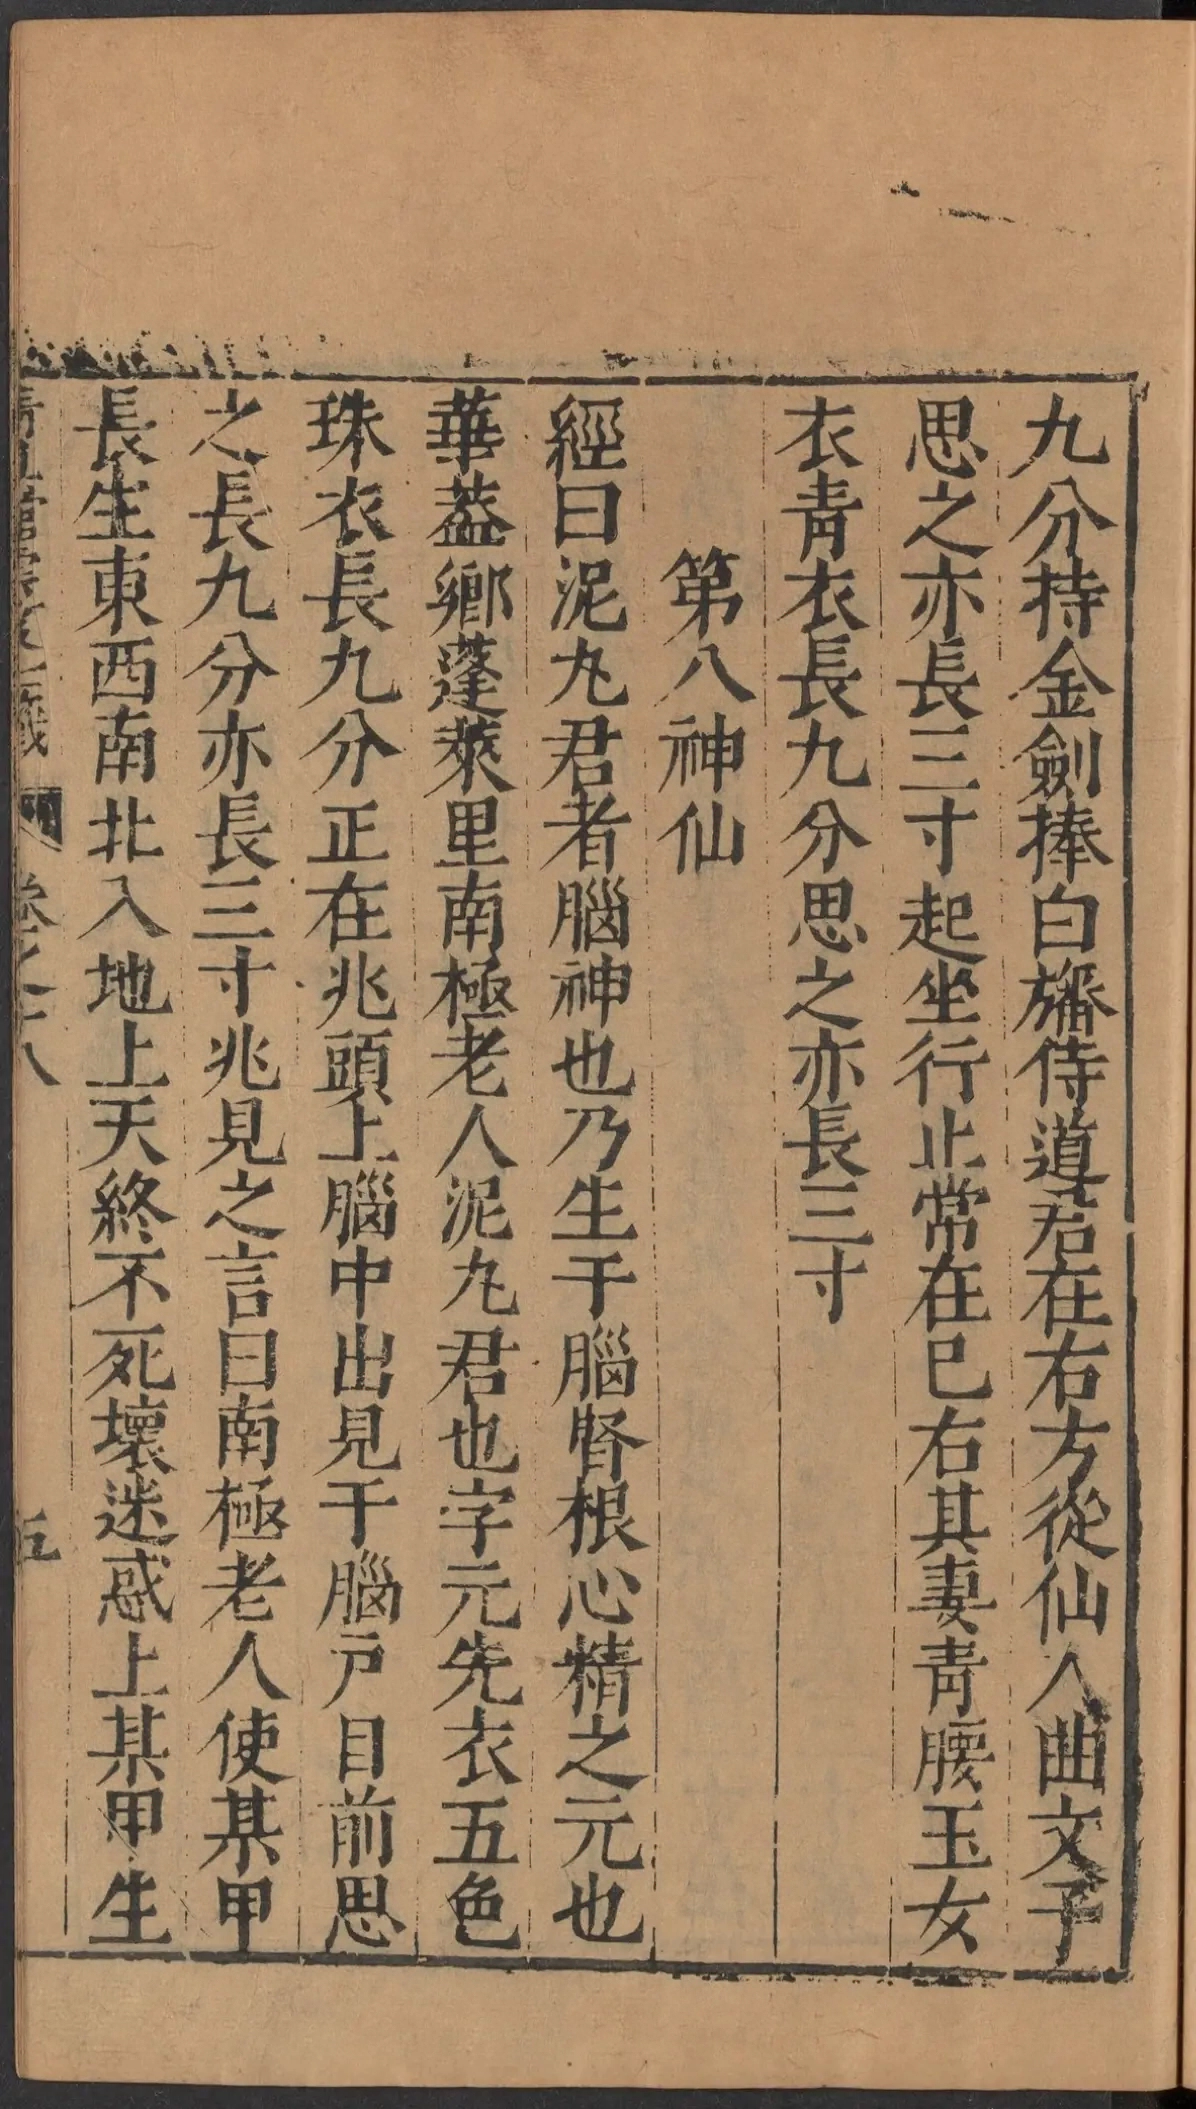 九分持金劍捧白旛侍道君在右方從仙人曲文子
思之亦長三寸起坐行止常在巳右其妻青腰玉女
衣青衣長九分思之亦長三寸
第八神仙
經曰泥丸君者腦神也乃生于腦腎根心精之元也
華葢鄉蓬萊里南極老人泥丸君也字元先衣五色
珠衣長九分正在兆頭上腦中出見于腦戶目前思
之長九分亦長三寸兆見之言曰南極老人使某甲
長生東西南北入地上天終不死壞迷惑上某甲生
卷之十八
五